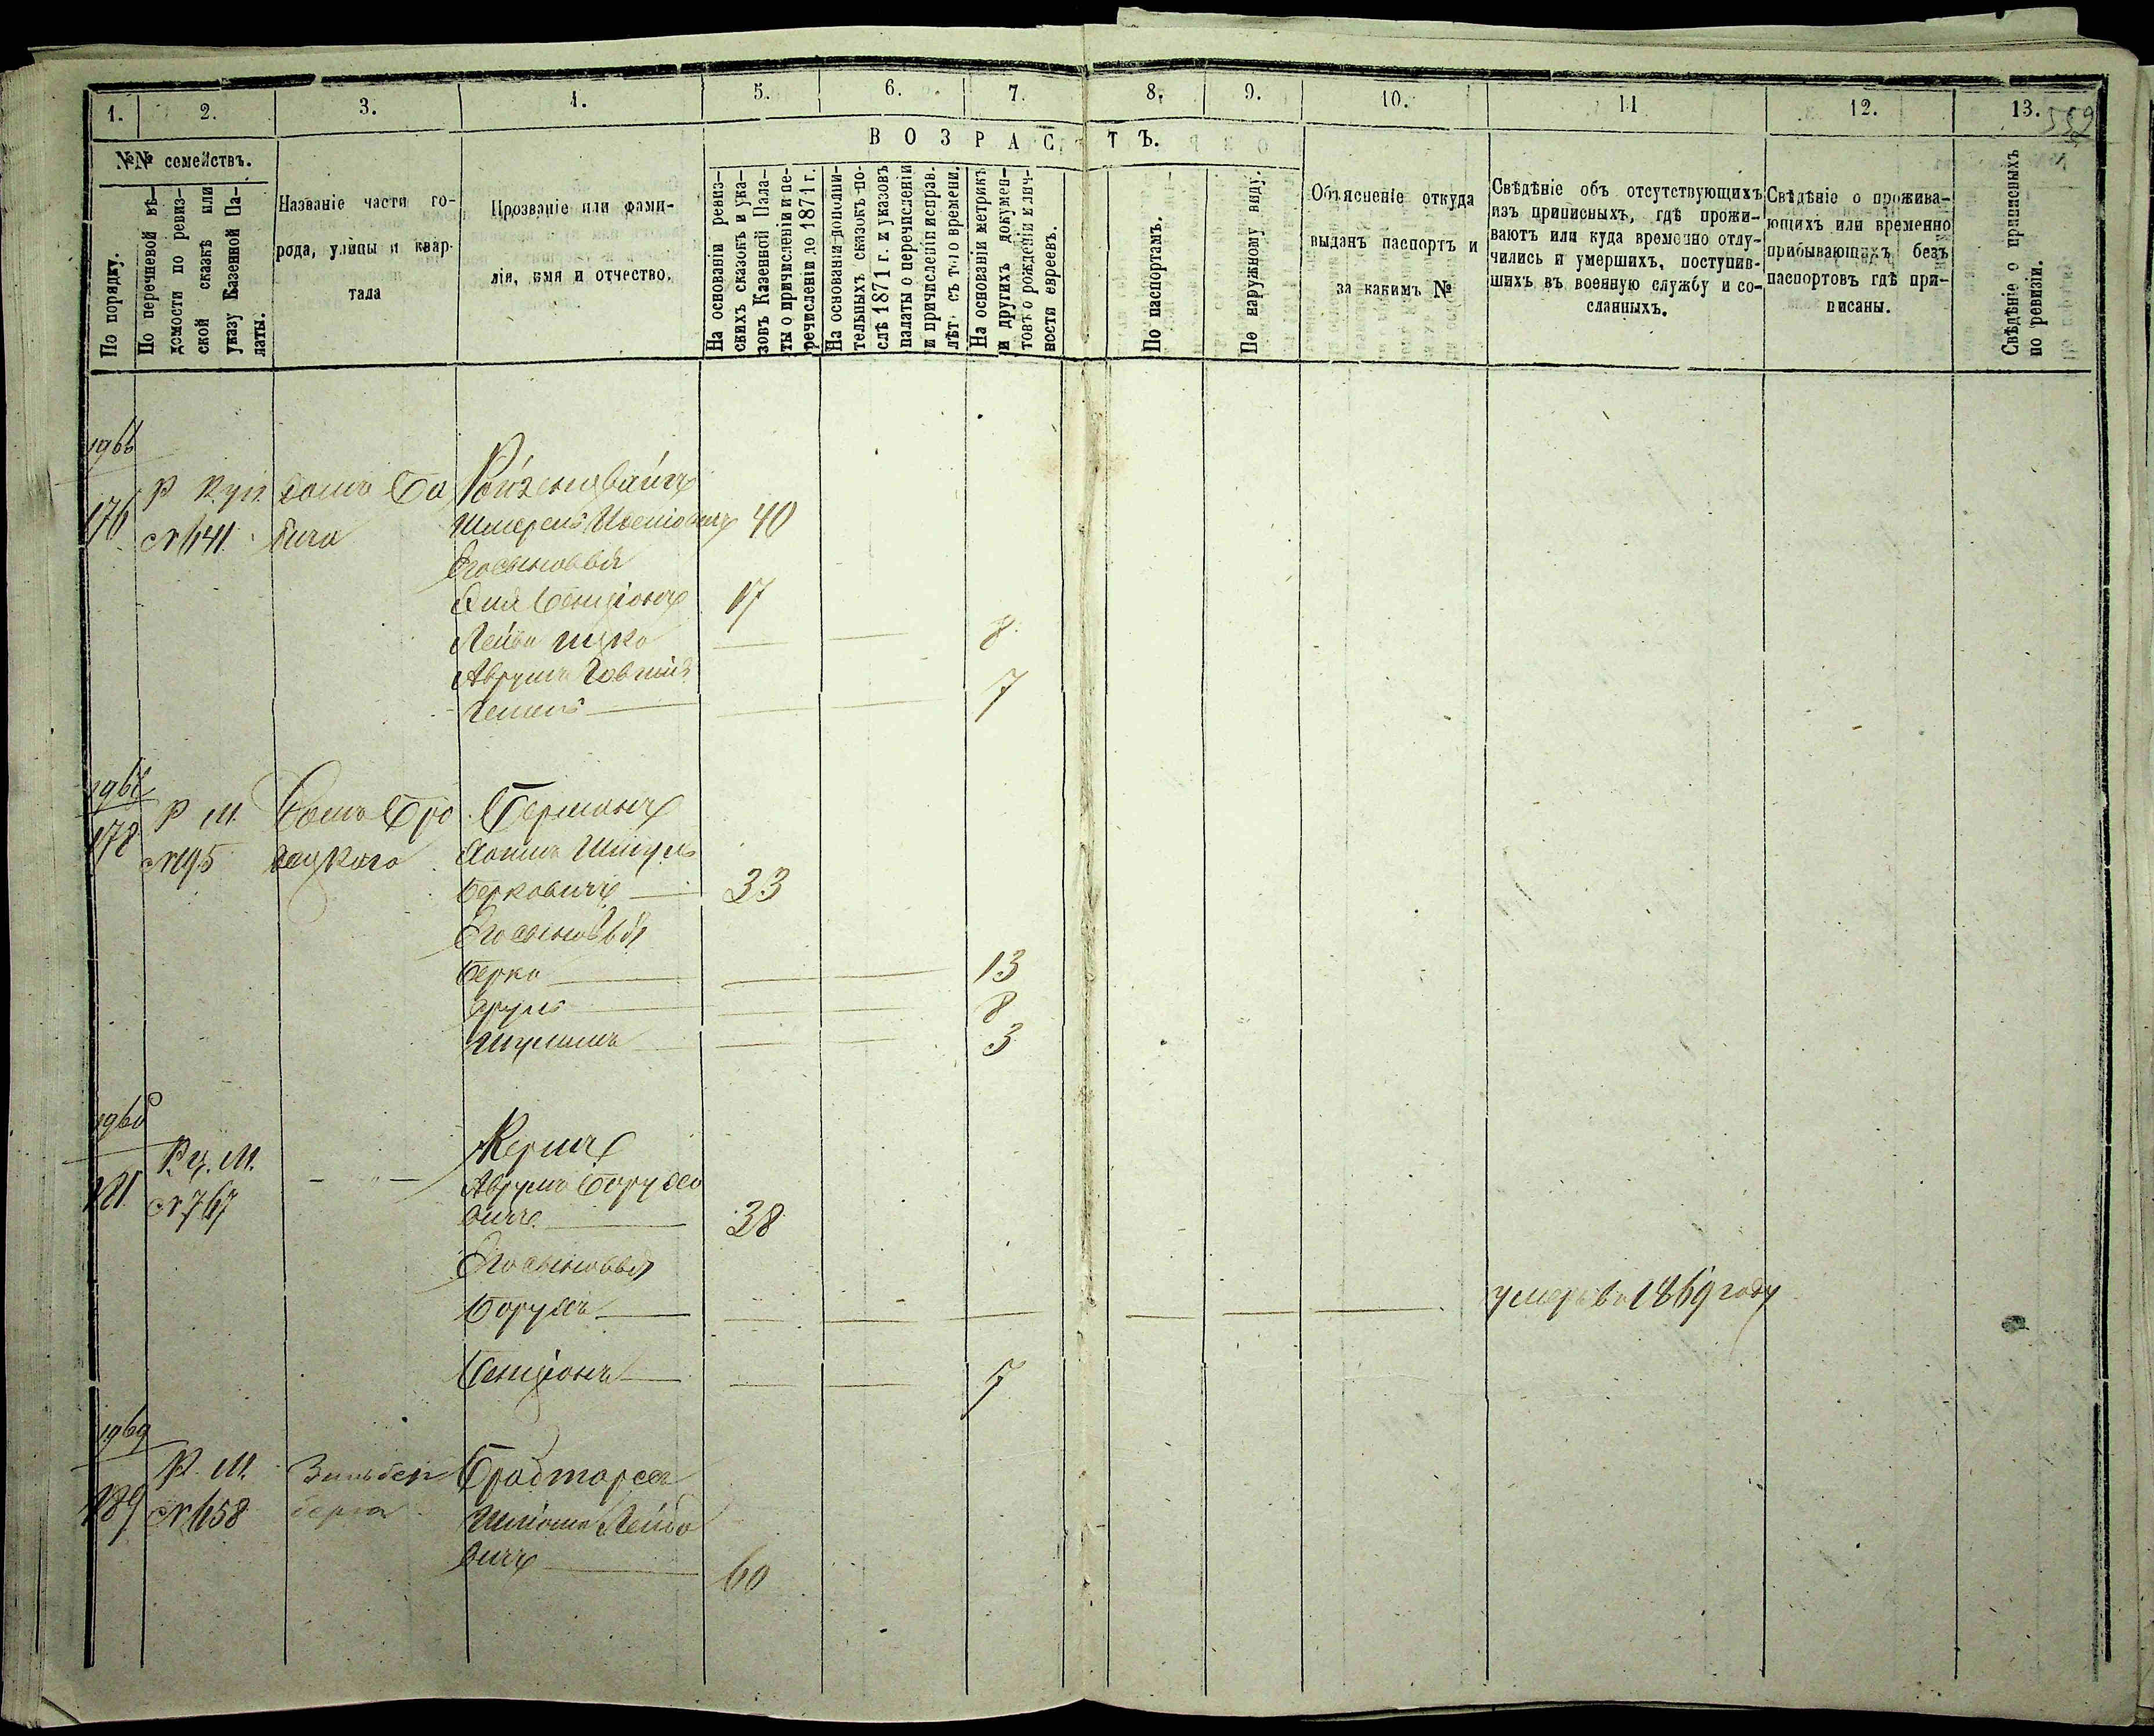 1. 2. 3. 4. 5. 6. 7. 8. 9. 10. 11 12. 13.
559
ВОЗРАСТЪ.
№№ семействъ.
По порядку.
По перечневой вѣ-
домости по ревиз-
ской сказкѣ или
указу Казенной Па-
латы.
Названіе части го-
рода, улицы и квар-
тала
Прозваніе или фами-
лія, имя и отчество.
На основаніи ревиз-
скихъ сказокъ и ука-
зовъ Казенной Пала-
ты о причисленіи и пе-
речисленіи до 1871 г.
На основаніи дополни-
тельныхъ сказокъ по-
слѣ 1871 г. и указовъ
палаты о перечисленіи
и причисленіи исправ.
лѣт. съ того времени.
На основаніи метрикъ
и другихъ докумен-
товъ о рожденіи и лич-
ности евреевъ.
По паспортамъ.
По наружному виду.
Объясненіе откуда
выданъ паспортъ и
за какимъ №
Свѣдѣніе объ отсутствующихъ
изъ приписныхъ, гдѣ прожи-
ваютъ или куда временно отлу-
чились и умершихъ, поступив-
шихъ въ военную службу и со-
сланныхъ.
Свѣдѣніе о прожива-
ющихъ или временно
прибывающихъ безъ
паспортовъ гдѣ при-
писаны.
Свѣдѣніе о приписныхъ
по ревизіи.
1966
176 Р Куп домъ Би Ройзенцвайгъ
№ 641 бича Шмерель 40
Его сыновья
Бенціонъ 17
Лейба Ицко 8
Аврумъ
7
178 Р М. Домъ Бро Берманъ
№ 195 децкаго Хаимъ Шмуль
Берковичъ 33
Его сыновья
Берко 13
Сруль 8
3
1968
181 Рц. М. Кермъ
№ 767 Аврумъ Борухо
вичъ 38
Его сыновья
Борухъ умеръ въ 1869 году
Бенціонъ 7
1969
189 Р. М. Зильбер Бродторсъ
№ 658 берга Шліома Лейбо
вичъ 60